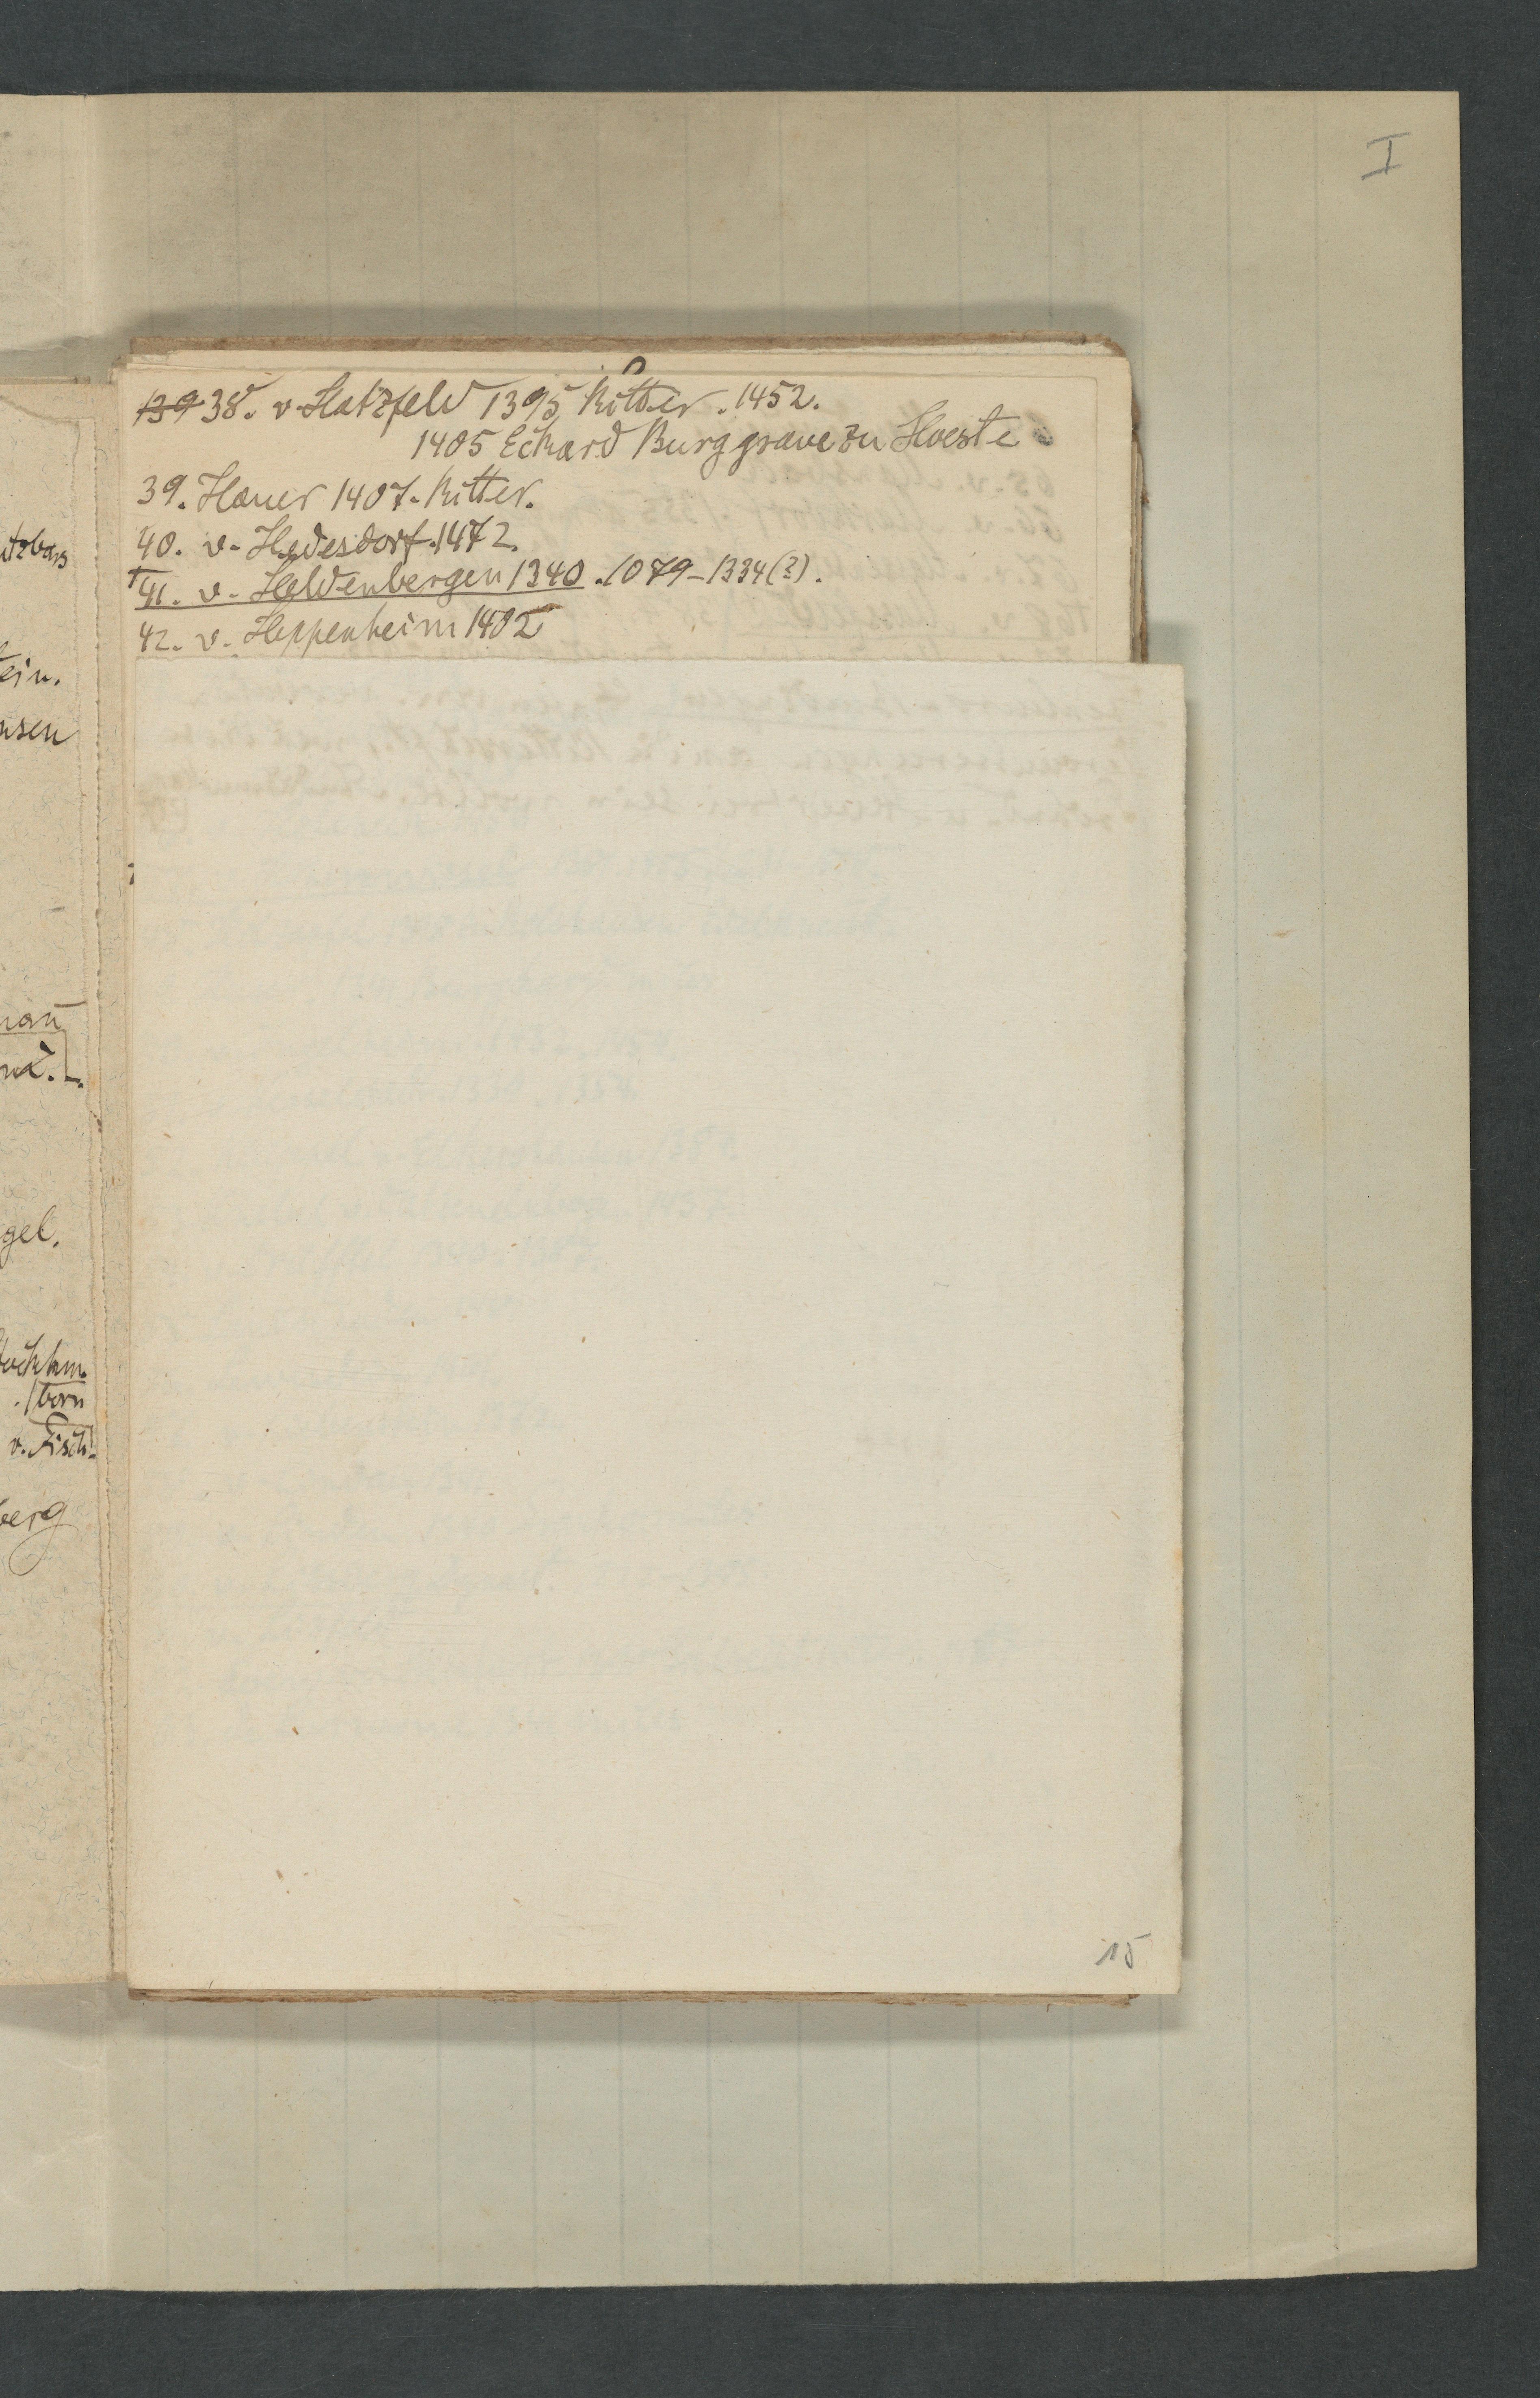 I
139 38. v. Hatzfeld 1395 Ritter. 1452.
1405 Eckard Burggrave zu Hoeste
39. Haner 1407. Ritter.
40. v. Hedesdorf. 1472.
+41. v. Heldenbergen 1340. 1079-1334(?).
42. v. Heppenheim 1402
ein.
nsen
gel.
born
v. Fisch-
berg
15